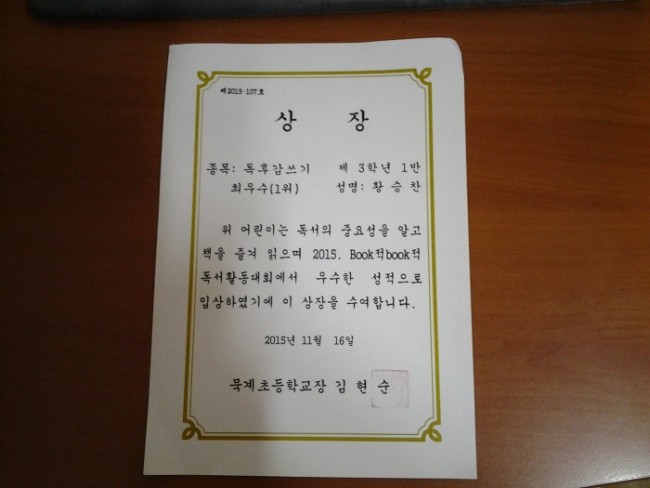 제2015-107호
상 장
종목: 독후감쓰기 제 3학년 1반
최우수(1위) 성명: 황 승 찬
위 어린이는 독서의 중요성을 알고
책을 즐겨 읽으며 2015. Book적book적
독서활동대회에서 우수한 성적으로
입상하였기에 이 상장을 수여합니다.
2015년 11월 16일
묵계초등학교장 김 현 순